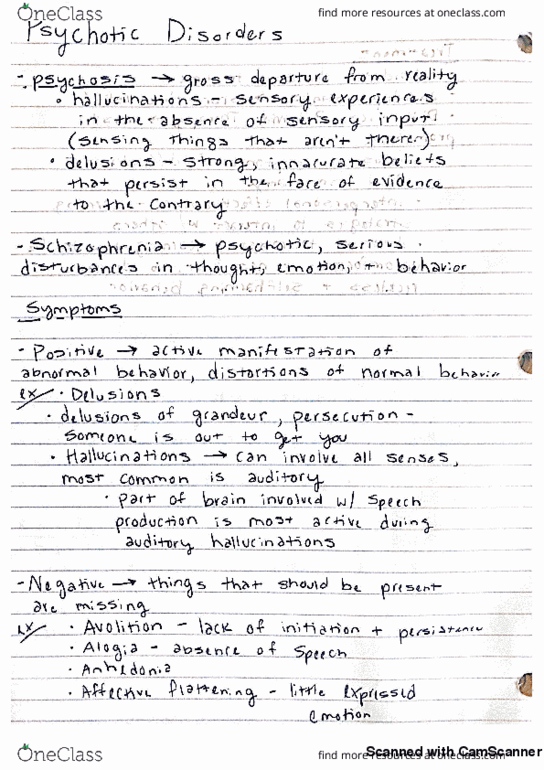 OneClass find more resources at oneclass.com
Psychotic Disorders
- psychosis → gross departure from reality
• hallucinations - sensory experiences
in the absence of sensory input
(sensing things that aren't there)
• delusions - strong, innacurate beliefs
that persist in the face of evidence
to the contrary
- Schizophrenia → psychotic, serious
disturbances in thought, emotion, + behavior
Symptoms
- Positive → active manifestation of
abnormal behavior, distortions of normal behavior
ex/ • Delusions
• delusions of grandeur, persecution -
someone is out to get you
• Hallucinations → can involve all senses,
most common is auditory
• part of brain involved w/ speech
production is most active during
auditory hallucinations
- Negative → things that should be present
are missing
ex/ • Avolition - lack of initiation + persistence
• Alogia - absence of speech
• Anhedonia
• Affective flattening - little expressed
emotion
OneClass find more resources at oneclass.com
Scanned with CamScanner